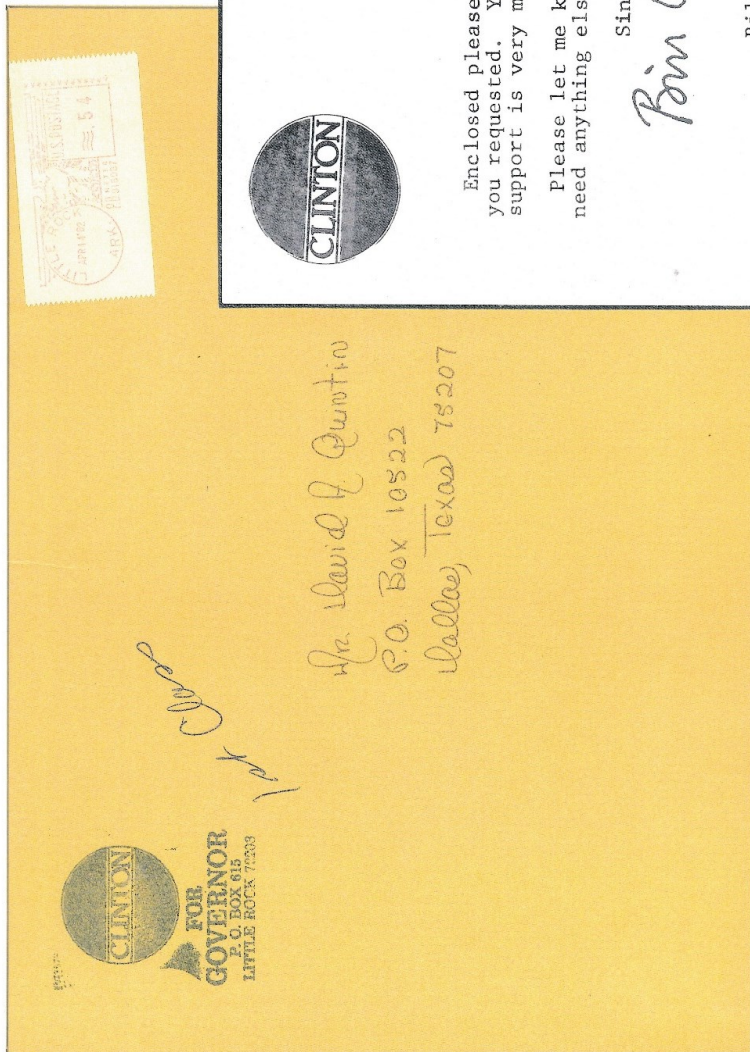 CLINTON
FOR
GOVERNOR
P. O. BOX 615
LITTLE ROCK 72203
1st Class
Mr. David A Quintin
P.O. Box 10522
Dallas, Texas 75207
ARK
54
CLINTON
Enclosed please
you requested. Y
support is very m
Please let me k
need anything els
Sin
Bill C